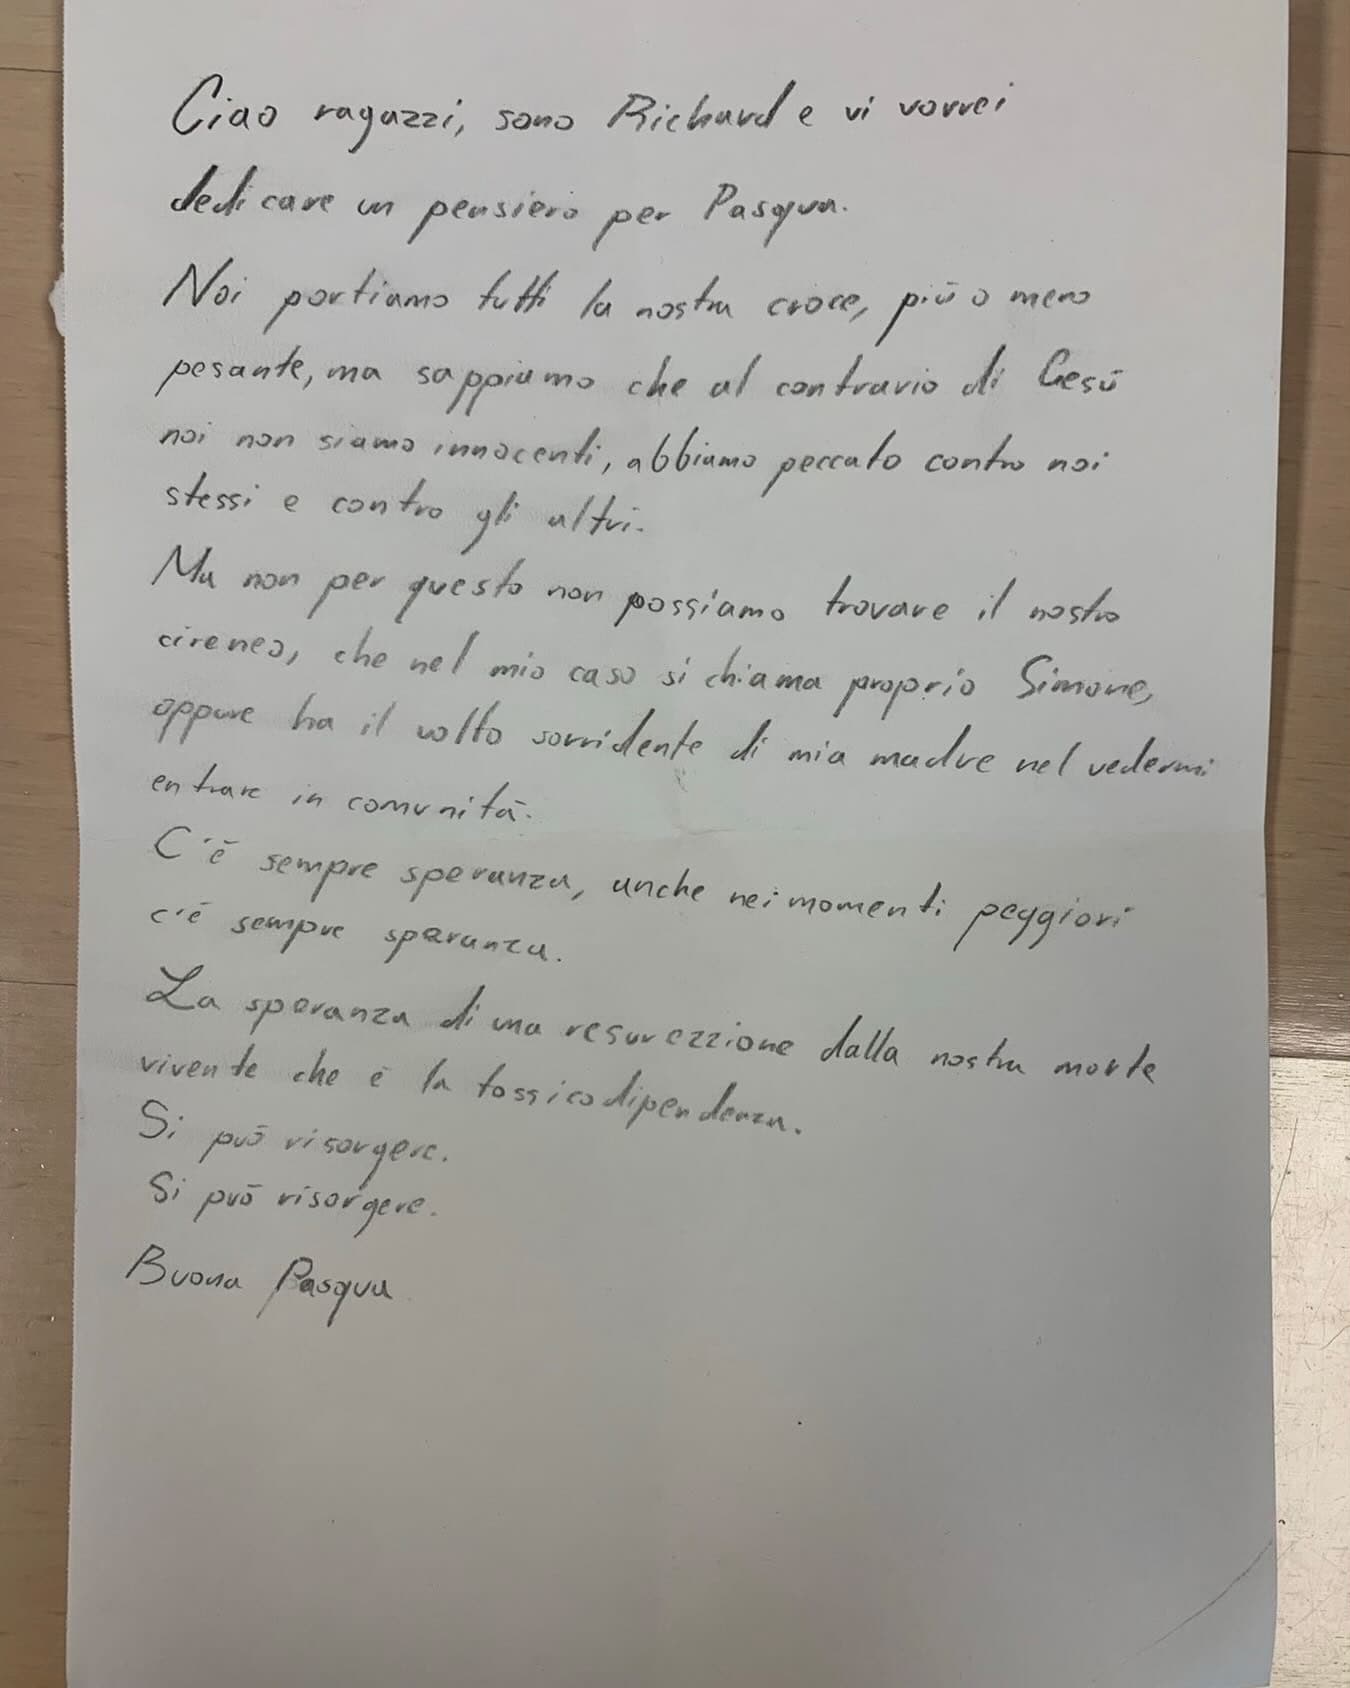 Ciao ragazzi, sono Richard e vi vorrei
dedicare un pensiero per Pasqua.
Noi portiamo tutti la nostra croce, più o meno
pesante, ma sappiamo che al contrario di Gesù
noi non siamo innocenti, abbiamo peccato contro noi
stessi e contro gli altri.
Ma non per questo non possiamo trovare il nostro
cireneo, che nel mio caso si chiama proprio Simone,
oppure ha il volto sorridente di mia madre nel vedermi
entrare in comunità.
C'è sempre speranza, anche nei momenti peggiori
c'è sempre speranza.
La speranza di una resurezzione dalla nostra morte
vivente che è la tossicodipendenza.
Si può risorgere.
Si può risorgere.
Buona Pasqua